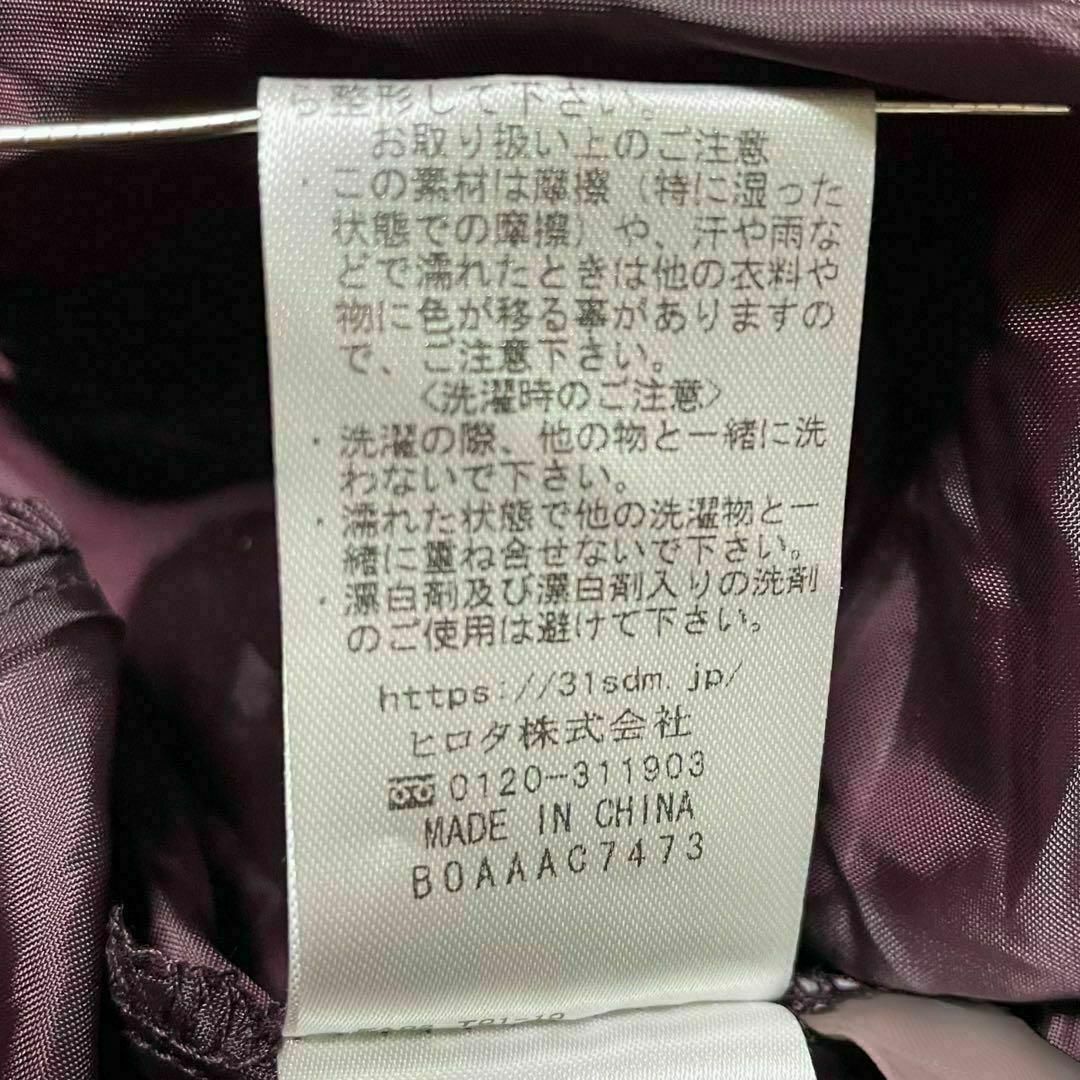 ら整形して下さい。
お取り扱い上のご注意
・この素材は摩擦（特に湿った
状態での摩擦）や、汗や雨な
どで濡れたときは他の衣料や
物に色が移る事がありますの
で、ご注意下さい。
〈洗濯時のご注意〉
・洗濯の際、他の物と一緒に洗
わないで下さい。
・濡れた状態で他の洗濯物と一
緒に重ね合せないで下さい。
・漂白剤及び漂白剤入りの洗剤
のご使用は避けて下さい。
https://31sdm.jp/
ヒロタ株式会社
0120-311903
MADE IN CHINA
B0AAAC7473